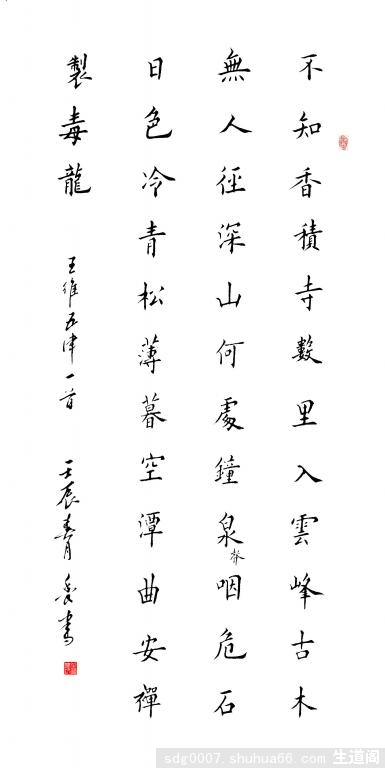 不知香積寺數里入雲峰古木
無人徑深山何處鐘泉聲咽危石
日色冷青松薄暮空潭曲安禪
製毒龍 王維五律一首 壬辰書
sdg0007.shuhua66.com 生道阁